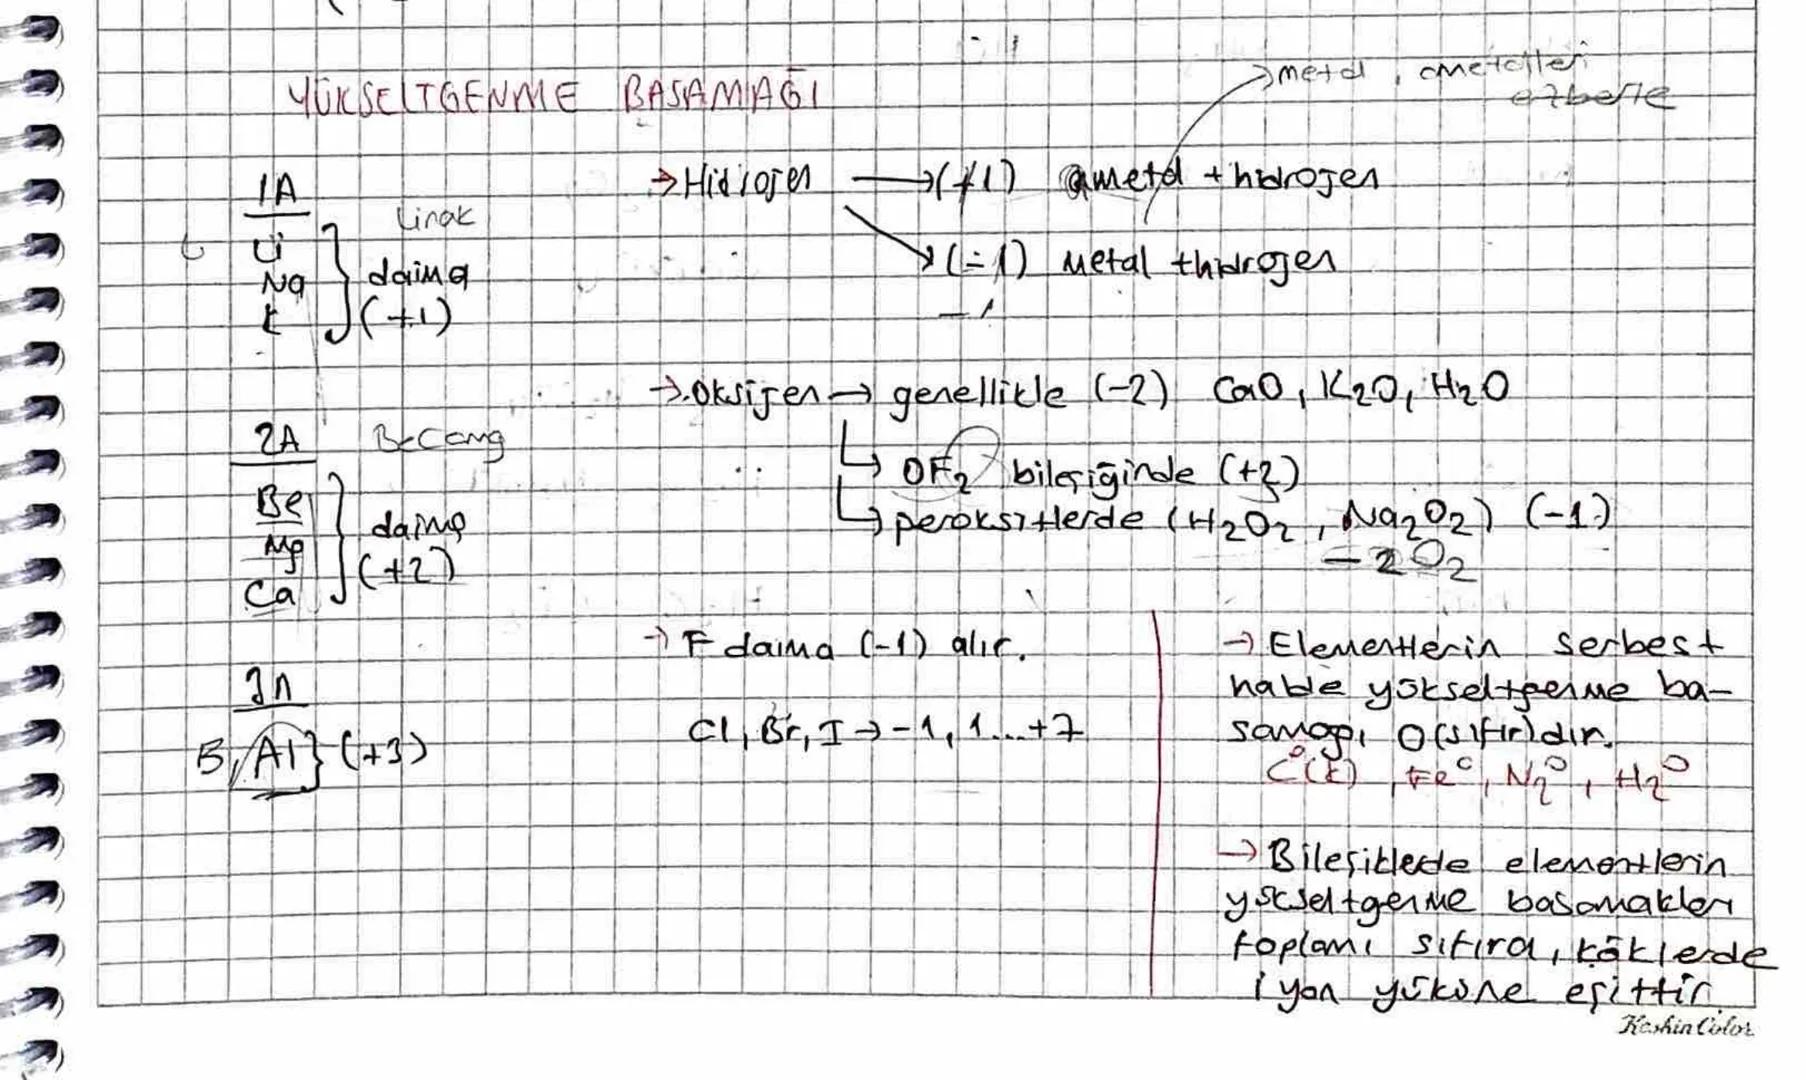 YÜKSELTGENME BASAMAĞI
→metal, ametalleri
ezberle
1A
Linak
Li
Na
K
daima
(+1)
→Hidrojen →(+1) ametal + hidrojen
→(-1) metal + hidrojen
→Oksijen→ genellikle (-2) CaO, K2O, H2O
→ OF2 bileşiğinde (+2)
→ peroksitlerde (H2O2, Na2O2) (-1)
-2O2
2A
BeCamg
Be
Mg
Ca
daima
(+2)
→ F daima (-1) alır.
Cl, Br, I → -1, 1...+7
3A
B, Al} (+3)
→ Elementlerin serbest
halde yükseltgenme ba-
samağı 0(sıfır)dır.
C⁰(k), Fe⁰, N2⁰, H2⁰
→ Bileşiklerde elementlerin
yükseltgenme basamakları
toplamı sıfıra, köklerde
iyon yüküne eşittir
Keskin Color